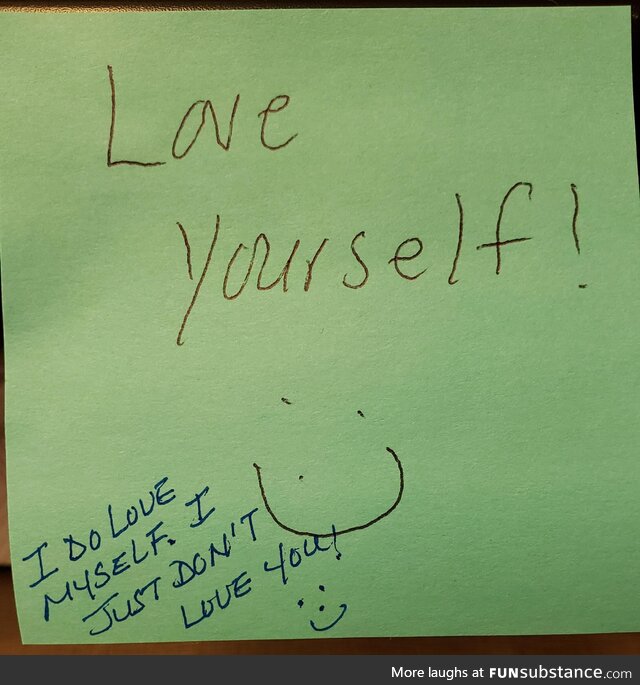 Love
Yourself!
I DO LOVE
MYSELF. I
JUST DON'T
LOVE YOU!
More laughs at FUNsubstance.com